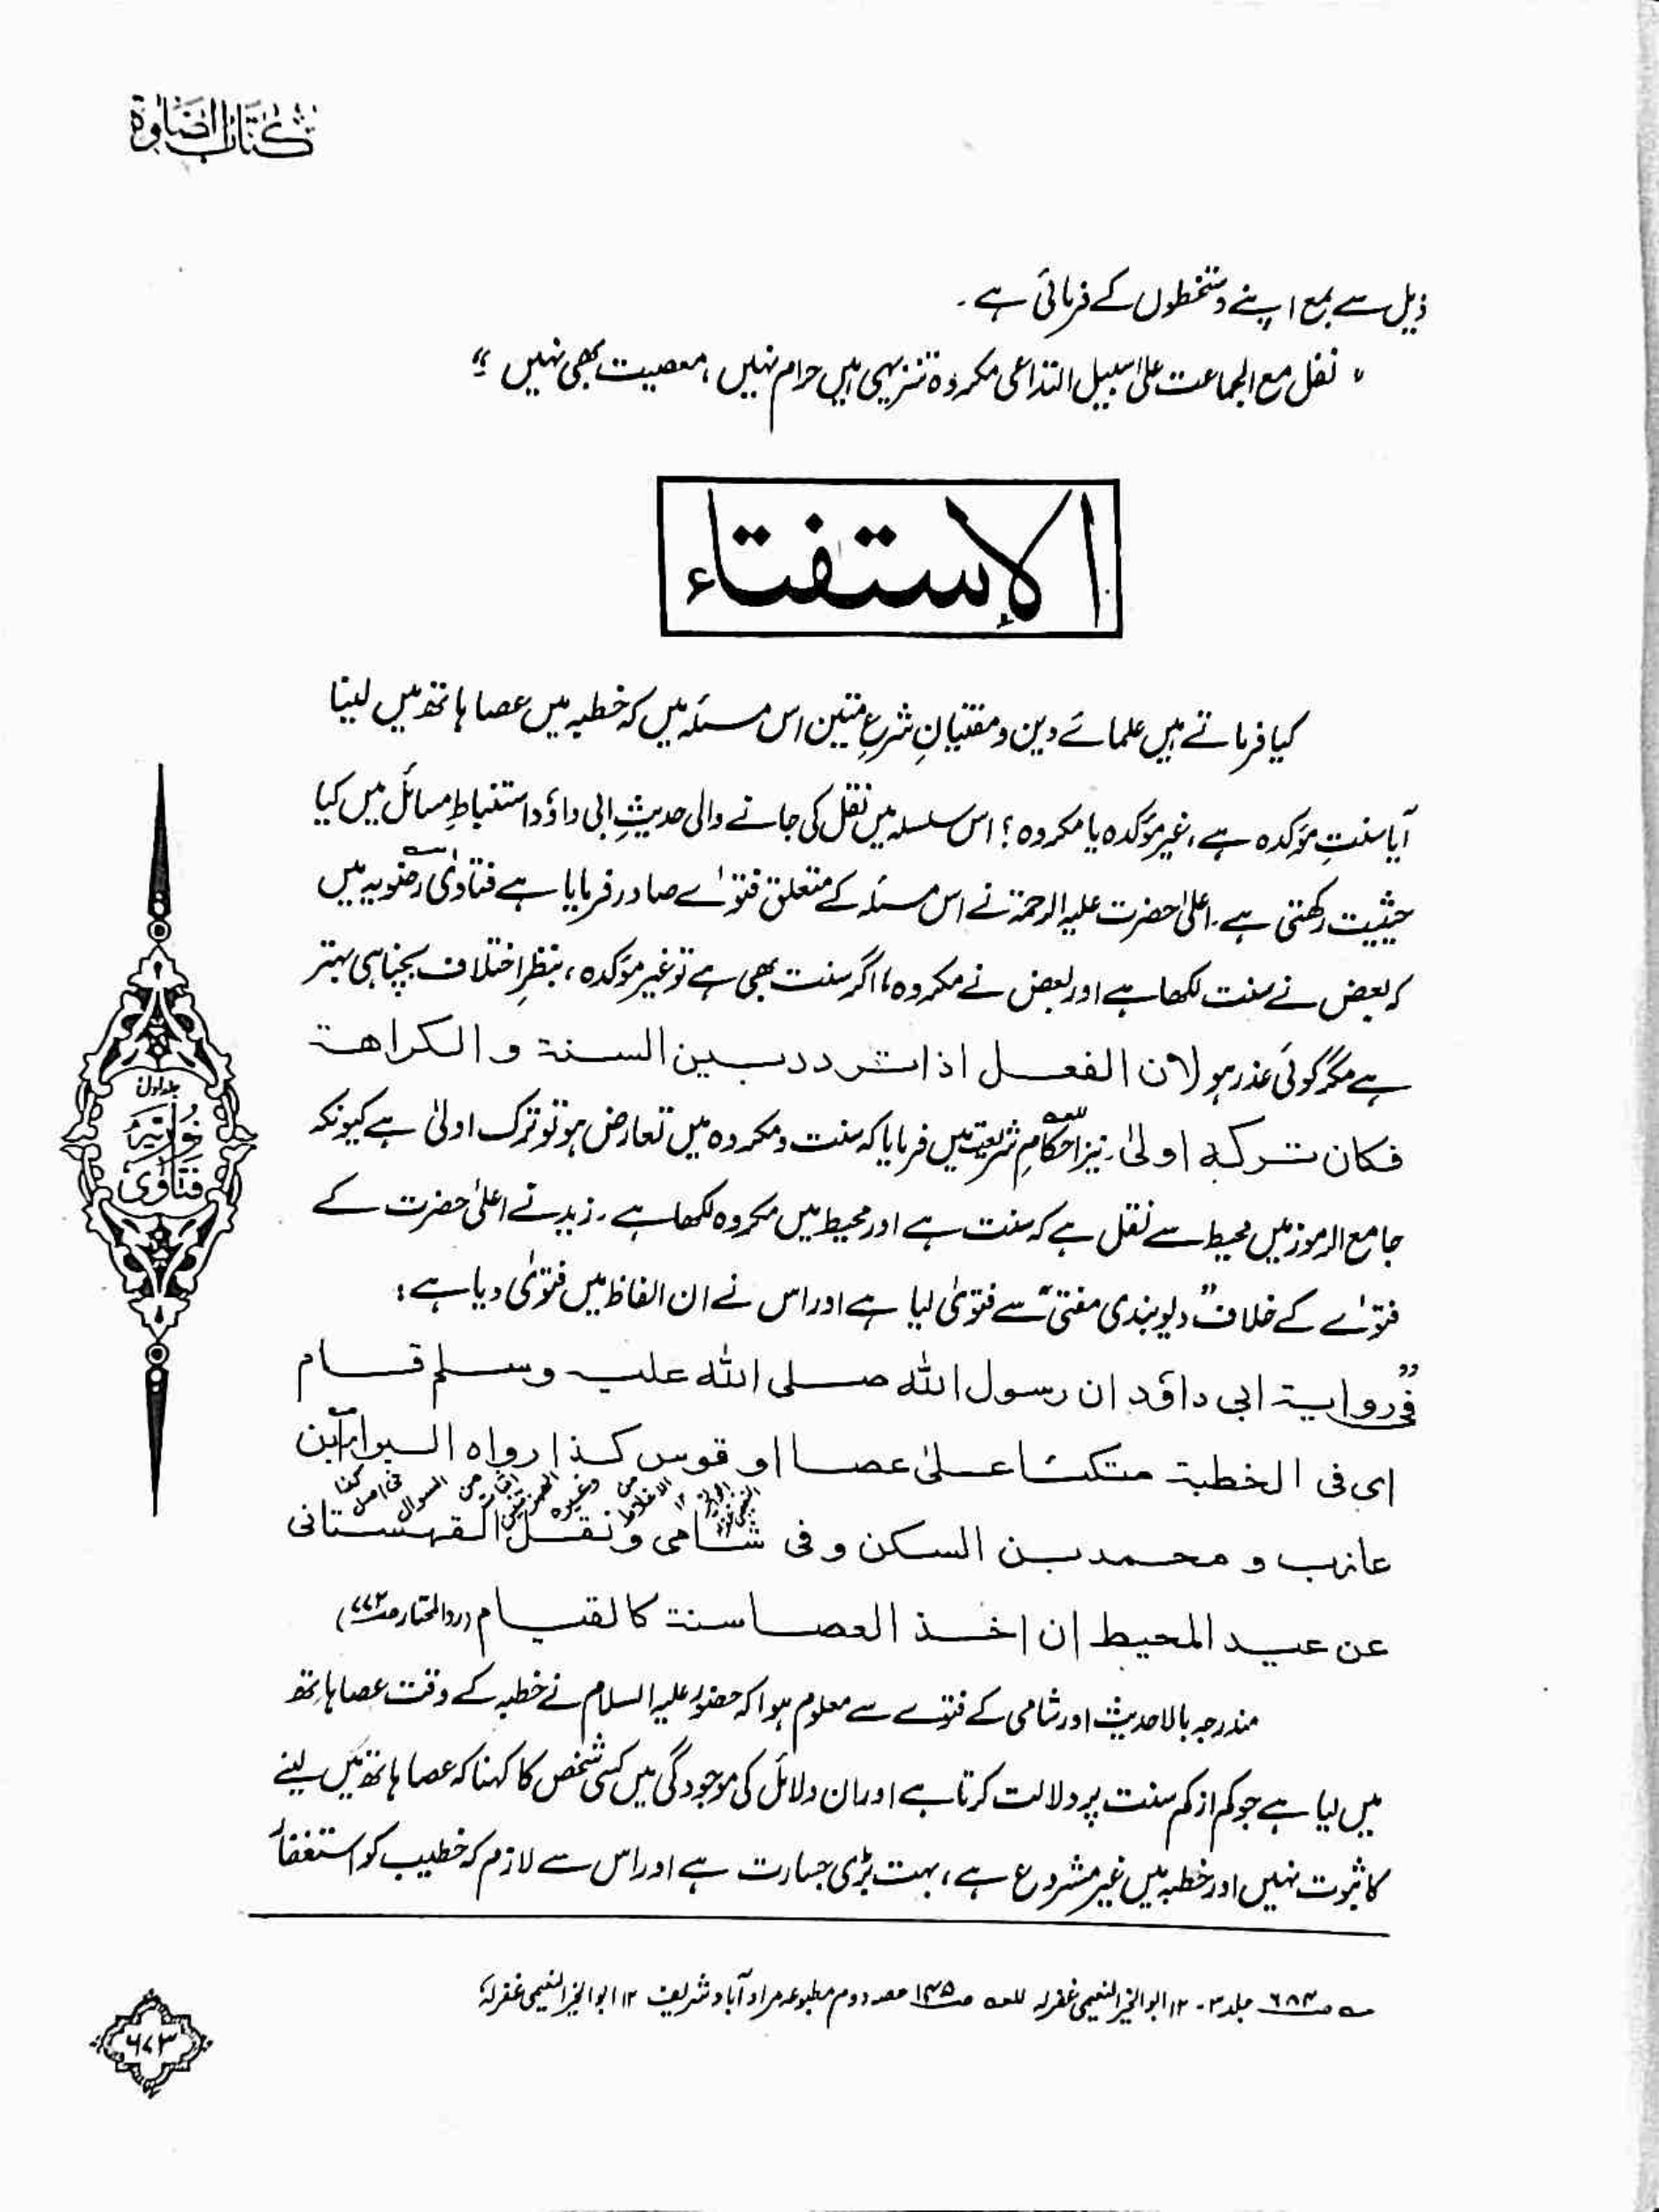 كتاب الصلوة
ذیل سے بمع اپنے دستخطوں کے فرمائی ہے۔
" نفل مع الجماعت علیٰ سبیل التداعی مکروہ تنزیہی ہیں حرام نہیں، معصیت بھی نہیں "
الاستفتاء
کیا فرماتے ہیں علمائے دین و مفتیانِ شرعِ متین اس مسئلہ میں کہ خطبہ میں عصا ہاتھ میں لینا
آیا سنتِ مؤکدہ ہے، غیر مؤکدہ یا مکروہ؟ اس سلسلہ میں نقل کی جانے والی حدیثِ ابی داؤد استنباطِ مسائل میں کیا
حیثیت رکھتی ہے۔ اعلیٰ حضرت علیہ الرحمۃ نے اس مسئلہ کے متعلق فتوٰے صادر فرمایا ہے فتاویٰ رضویہ میں
کہ بعض نے سنت لکھا ہے اور بعض نے مکروہ، اگر سنت بھی ہے تو غیر مؤکدہ، بنظرِ اختلاف بچنا ہی بہتر
ہے مگر کوئی عذر ہو لان الفعل اذا تردد بین السنة و الكراهة
فكان تركه اولىٰ۔ نیز احکامِ شریعت میں فرمایا کہ سنت و مکروہ میں تعارض ہو تو ترک اولیٰ ہے کیونکہ
جامع الرموز میں محیط سے نقل ہے کہ سنت ہے اور محیط میں مکروہ لکھا ہے۔ زید نے اعلیٰ حضرت کے
فتوٰے کے خلاف "دیوبندی مفتی" سے فتویٰ لیا ہے اور اس نے ان الفاظ میں فتویٰ دیا ہے:
"فی رواية ابی داؤد ان رسول الله صلی الله علیه وسلم قام
ای فی الخطبة متكئا علیٰ عصا او قوس كذا رواه البراء بن
عازب و محمد بن السكن و فی شامی و نقل القهستانی
عن عيد المحيط ان اخذ العصا سنة كالقيام (ردالمحتار ص۷۷۲)
مندرجہ بالا حدیث اور شامی کے فتوے سے معلوم ہوا کہ حضور علیہ السلام نے خطبہ کے وقت عصا ہاتھ
میں لیا ہے جو کم از کم سنت پر دلالت کرتا ہے اور ان دلائل کی موجودگی میں کسی شخص کا کہنا کہ عصا ہاتھ میں لینے
کا ثبوت نہیں اور خطبہ میں غیر مشروع ہے، بہت بڑی جسارت ہے اور اس سے لازم کہ خطیب کو استغفار
ص۶۸۴ جلد ۳۔ ۱۲ ابوالخیر النعیمی غفرلہ للعہ ص۱۴۵ حصہ دوم مطبوعہ مراد آباد شریف ۱۲ ابوالخیر النعیمی غفرلہٗ
جلد اول
نوریہ
فتاویٰ
۶۷۳